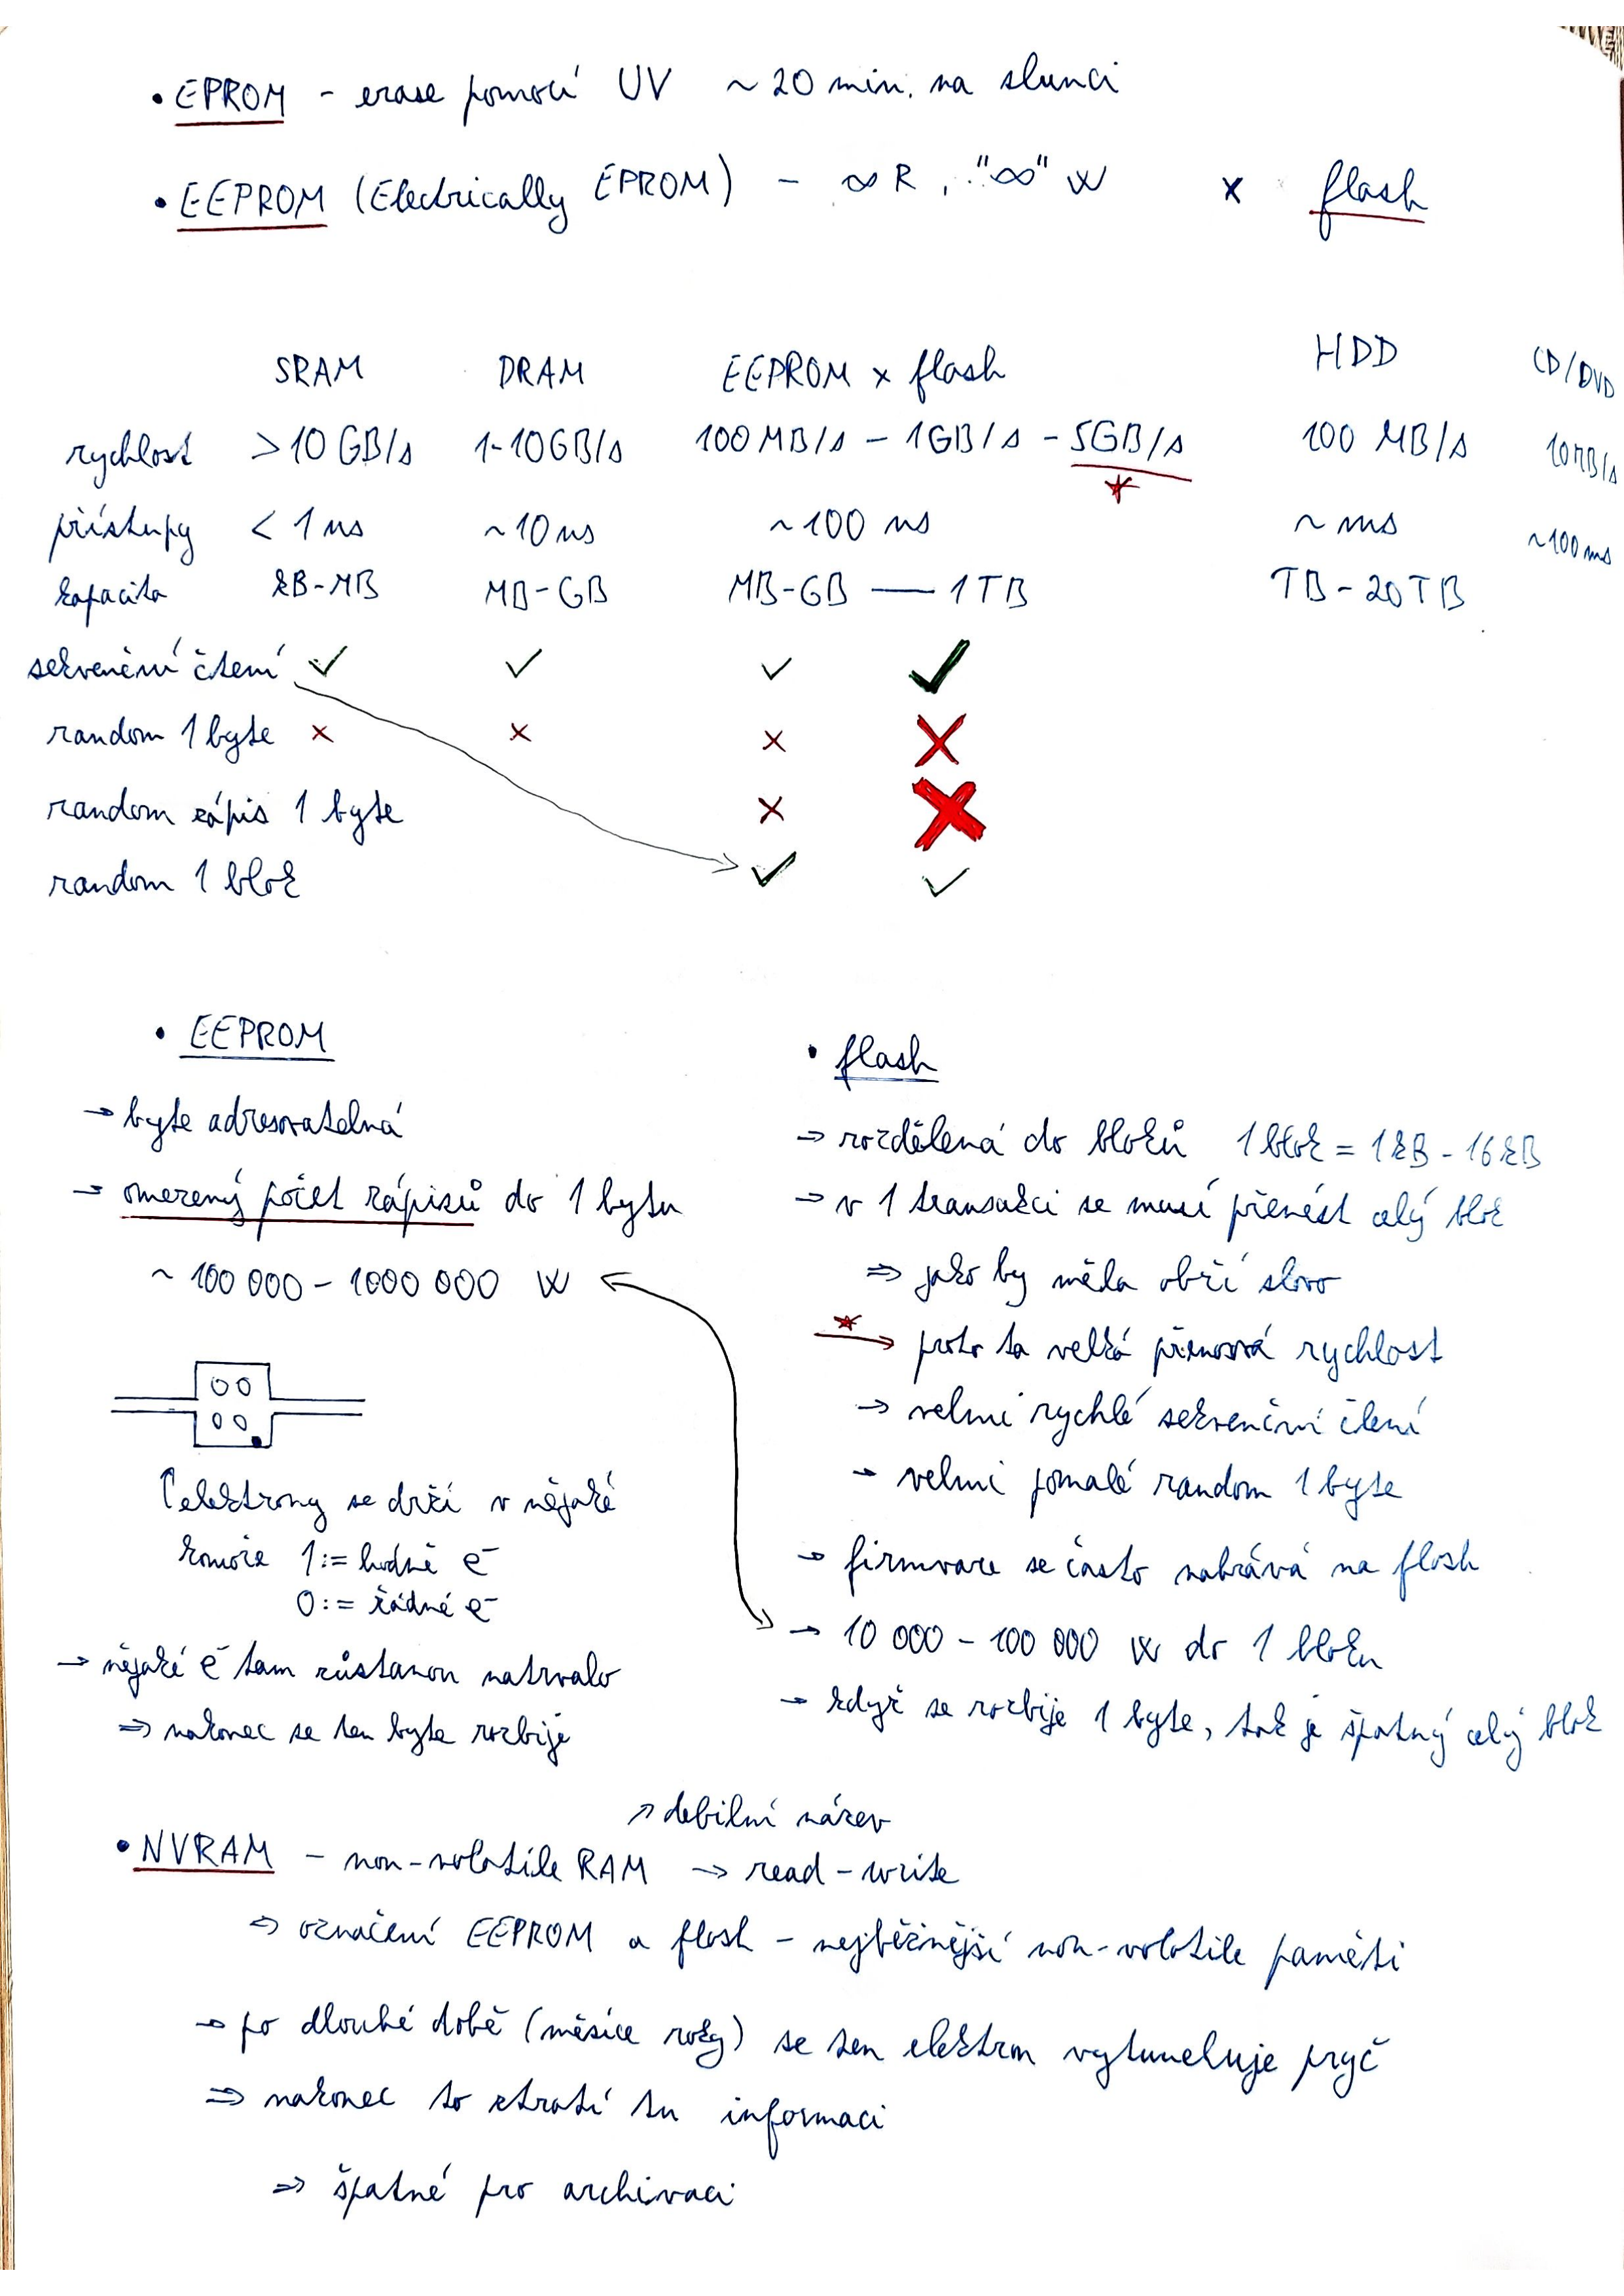 • EPROM - erase pomocí UV ~20 min. na slunci
• EEPROM (Electrically EPROM) - ∞ R, "∞" W x flash
SRAM DRAM EEPROM x flash HDD CD/DVD
rychlost >10 GB/s 1-10GB/s 100 MB/s - 1GB/s - 5GB/s 100 MB/s 10MB/s
*
přístupy < 1 ns ~10 ns ~100 ns ~ ms ~100 ms
kapacita kB-MB MB-GB MB-GB — 1TB TB-20TB
sekvenční čtení ✓ ✓ ✓ ✓
random 1 byte × × × ×
random zápis 1 byte × ×
random 1 blok ✓ ✓
• EEPROM
→ byte adresovatelná
→ omezený počet zápisů do 1 bytu
~ 100 000 - 1000 000 W
↑ elektrony se drží v nějaké
komoře 1:= hodně e⁻
0:= žádné e⁻
→ nějaké e⁻ tam zůstanou natrvalo
⇒ nakonec se ten byte rozbije
• flash
→ rozdělená do bloků 1 blok = 1kB - 16kB
→ v 1 transakci se musí přenést celý blok
⇒ jako by měla obří slovo
* → proto ta velká přenosová rychlost
→ velmi rychlé sekvenční čtení
→ velmi pomalé random 1 byte
→ firmware se často nahrává na flash
→ 10 000 - 100 000 W do 1 bloku
→ když se rozbije 1 byte, tak je špatný celý blok
↗ debilní název
• NVRAM - non-volatile RAM → read-write
⇒ označení EEPROM a flash - nejběžnější non-volatile paměti
→ po dlouhé době (měsíce roky) se ten elektron vytuneluje pryč
⇒ nakonec to ztratí tu informaci
⇒ špatné pro archivaci